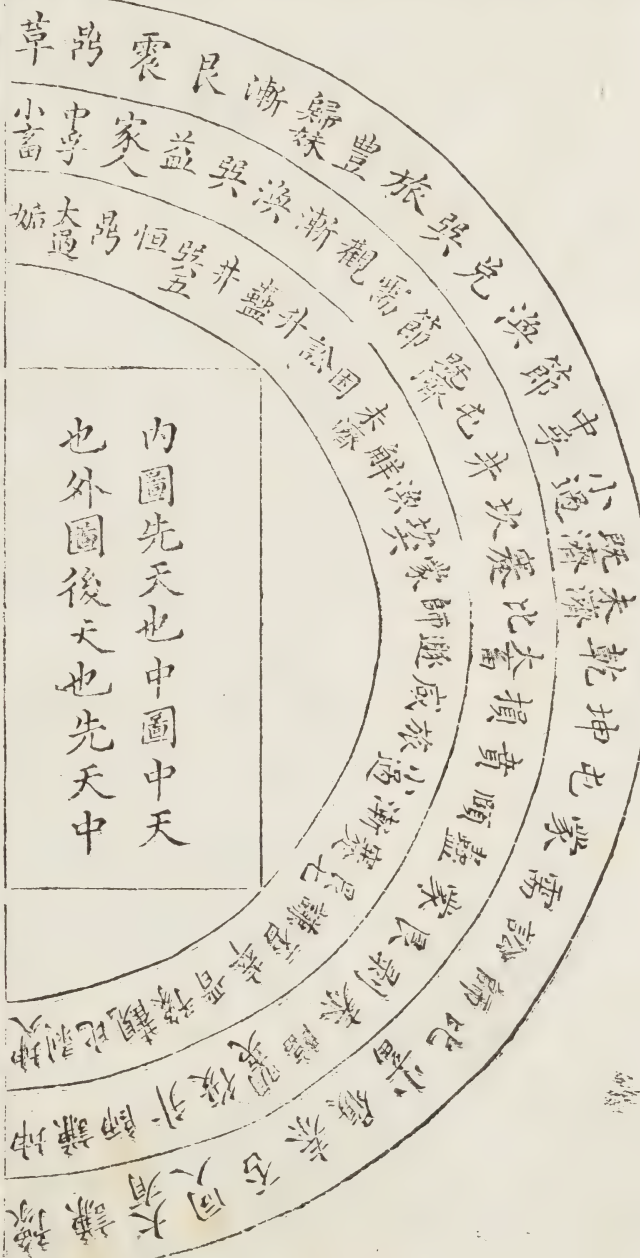 革鼎震艮漸歸妹豐旅巽兌渙節中孚小過既濟未濟乾坤屯蒙需訟師比小畜履泰否同人大有謙豫
小畜中孚家人益巽渙漸觀需節既濟屯井坎蹇比大畜損賁頤蠱蒙艮剝泰臨明夷復升師謙坤
姤大過鼎恒巽五井蠱升訟困未濟解渙坎六蒙師遯咸旅小過漸蹇艮七謙否萃晉豫觀比剝坤八
內圖先天也中圖中天
也外圖後天也先天中